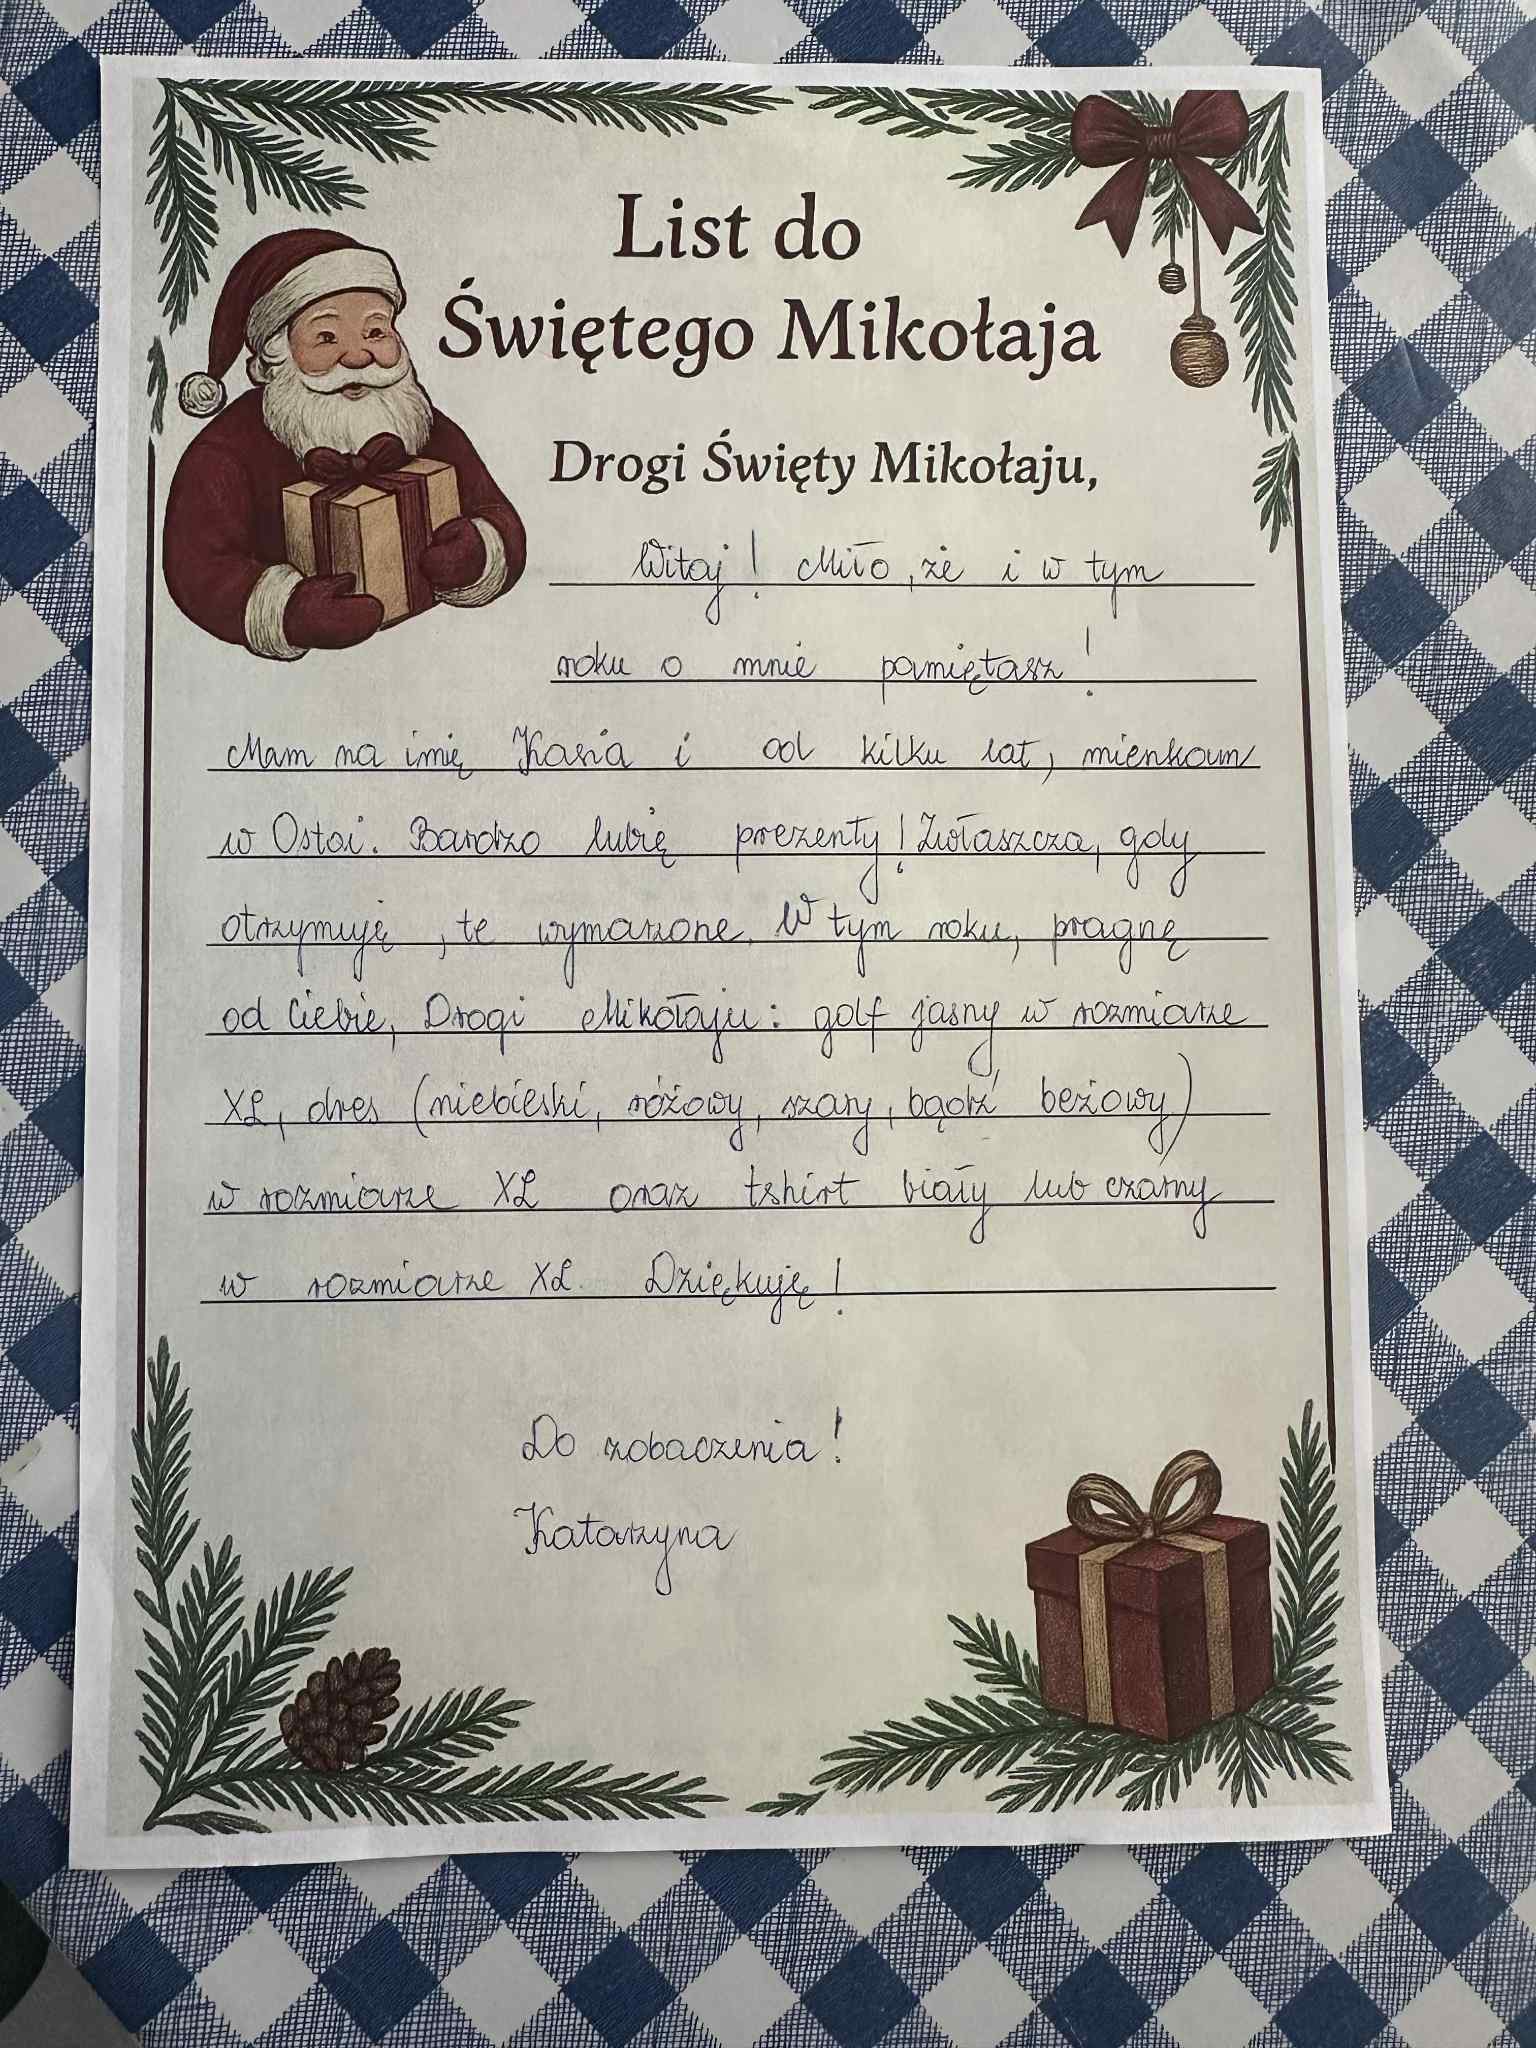 List do
Świętego Mikołaja
Drogi Święty Mikołaju,
Witaj! Miło, że i w tym
roku o mnie pamiętasz!
Mam na imię Kasia i od kilku lat, mieszkam
w Ostoi. Bardzo lubię prezenty! Zwłaszcza, gdy
otrzymuję, te wymarzone. W tym roku, pragnę
od Ciebie, Drogi Mikołaju: golf jasny w rozmiarze
XL, dres (niebieski, różowy, szary, bądź beżowy)
w rozmiarze XL oraz tshirt biały lub czarny
w rozmiarze XL. Dziękuję!
Do zobaczenia!
Katarzyna